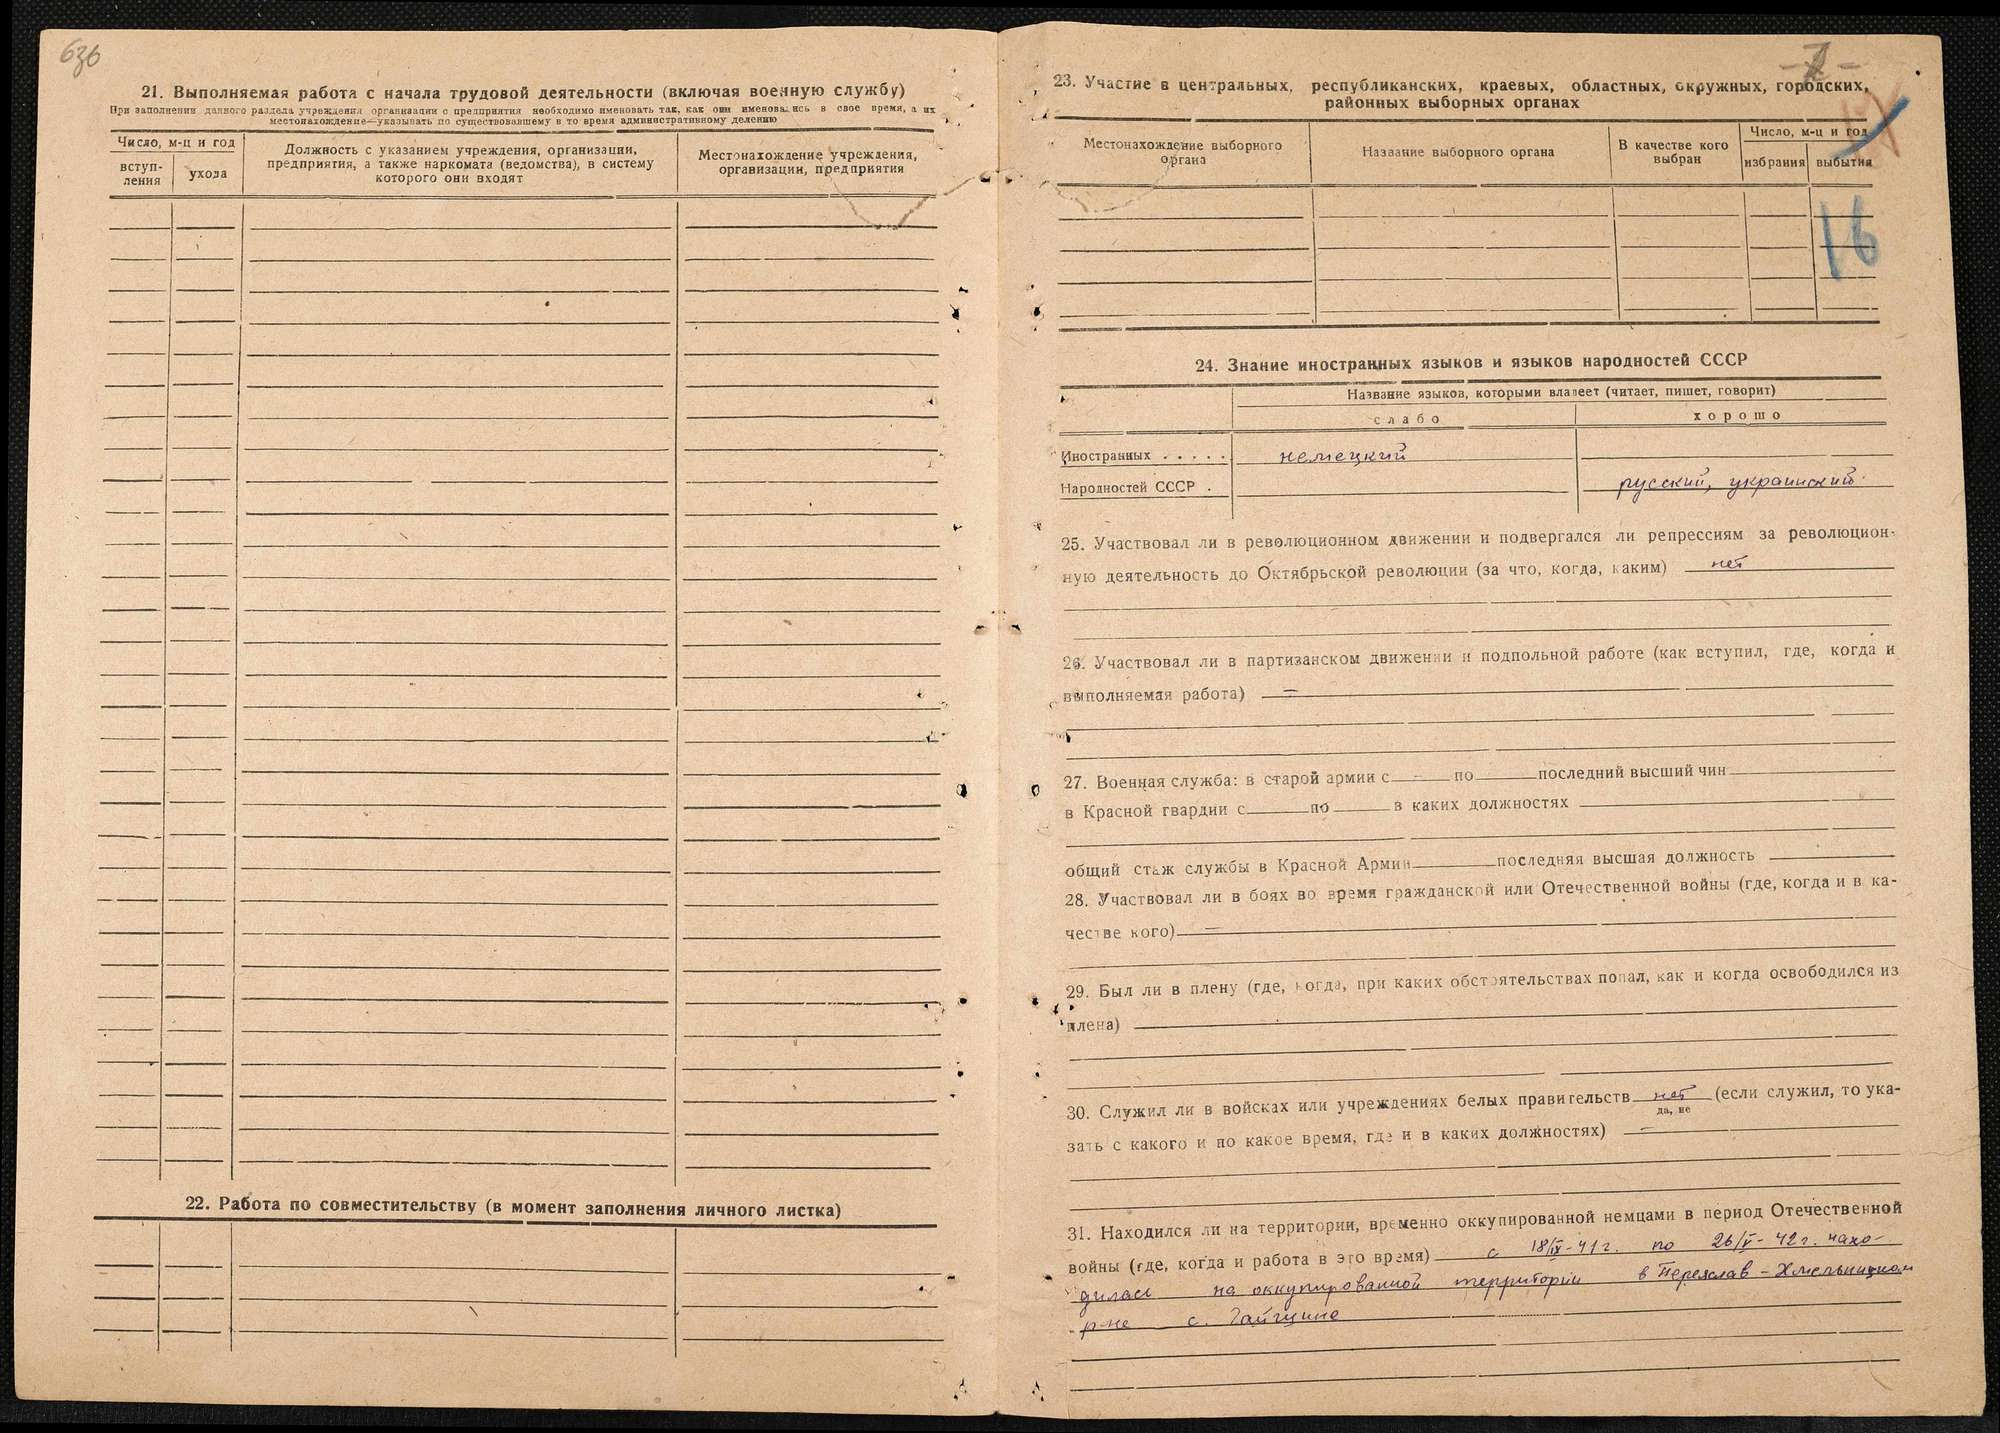 636
21. Выполняемая работа с начала трудовой деятельности (включая военную службу)
При заполнении данного раздела учреждения организации с предприятия необходимо именовать так, как они именовались в свое время, а их
местонахождение—указывать по существовавшему в то время административному делению
Число, м-ц и год
вступ-
ления
ухода
Должность с указанием учреждения, организации,
предприятия, а также наркомата (ведомства), в систему
которого они входят
Местонахождение учреждения,
организации, предприятия
22. Работа по совместительству (в момент заполнения личного листка)
23. Участие в центральных, республиканских, краевых, областных, окружных, городских,
районных выборных органах
Местонахождение выборного
органа
Название выборного органа
В качестве кого
выбран
Число, м-ц и год
избрания
выбытия
16
24. Знание иностранных языков и языков народностей СССР
Название языков, которыми владеет (читает, пишет, говорит)
слабо
хорошо
Иностранных . . . . . немецкий
Народностей СССР . русский, украинский.
25. Участвовал ли в революционном движении и подвергался ли репрессиям за революцион-
ную деятельность до Октябрьской революции (за что, когда, каким) нет
26. Участвовал ли в партизанском движении и подпольной работе (как вступил, где, когда и
выполняемая работа) —
27. Военная служба: в старой армии с - по последний высший чин
в Красной гвардии с по в каких должностях
общий стаж службы в Красной Армии последняя высшая должность
28. Участвовал ли в боях во время гражданской или Отечественной войны (где, когда и в ка-
честве кого) —
29. Был ли в плену (где, когда, при каких обстоятельствах попал, как и когда освободился из
плена)
30. Служил ли в войсках или учреждениях белых правительств нет (если служил, то ука-
да, не
зать с какого и по какое время, где и в каких должностях) —
31. Находился ли на территории, временно оккупированной немцами в период Отечественной
войны (где, когда и работа в это время) с 18/IX-41 г. по 26/V-42 г. нахо-
дилась на оккупированной территории в Переяслав-Хмельницком
р-не с. Гайшине